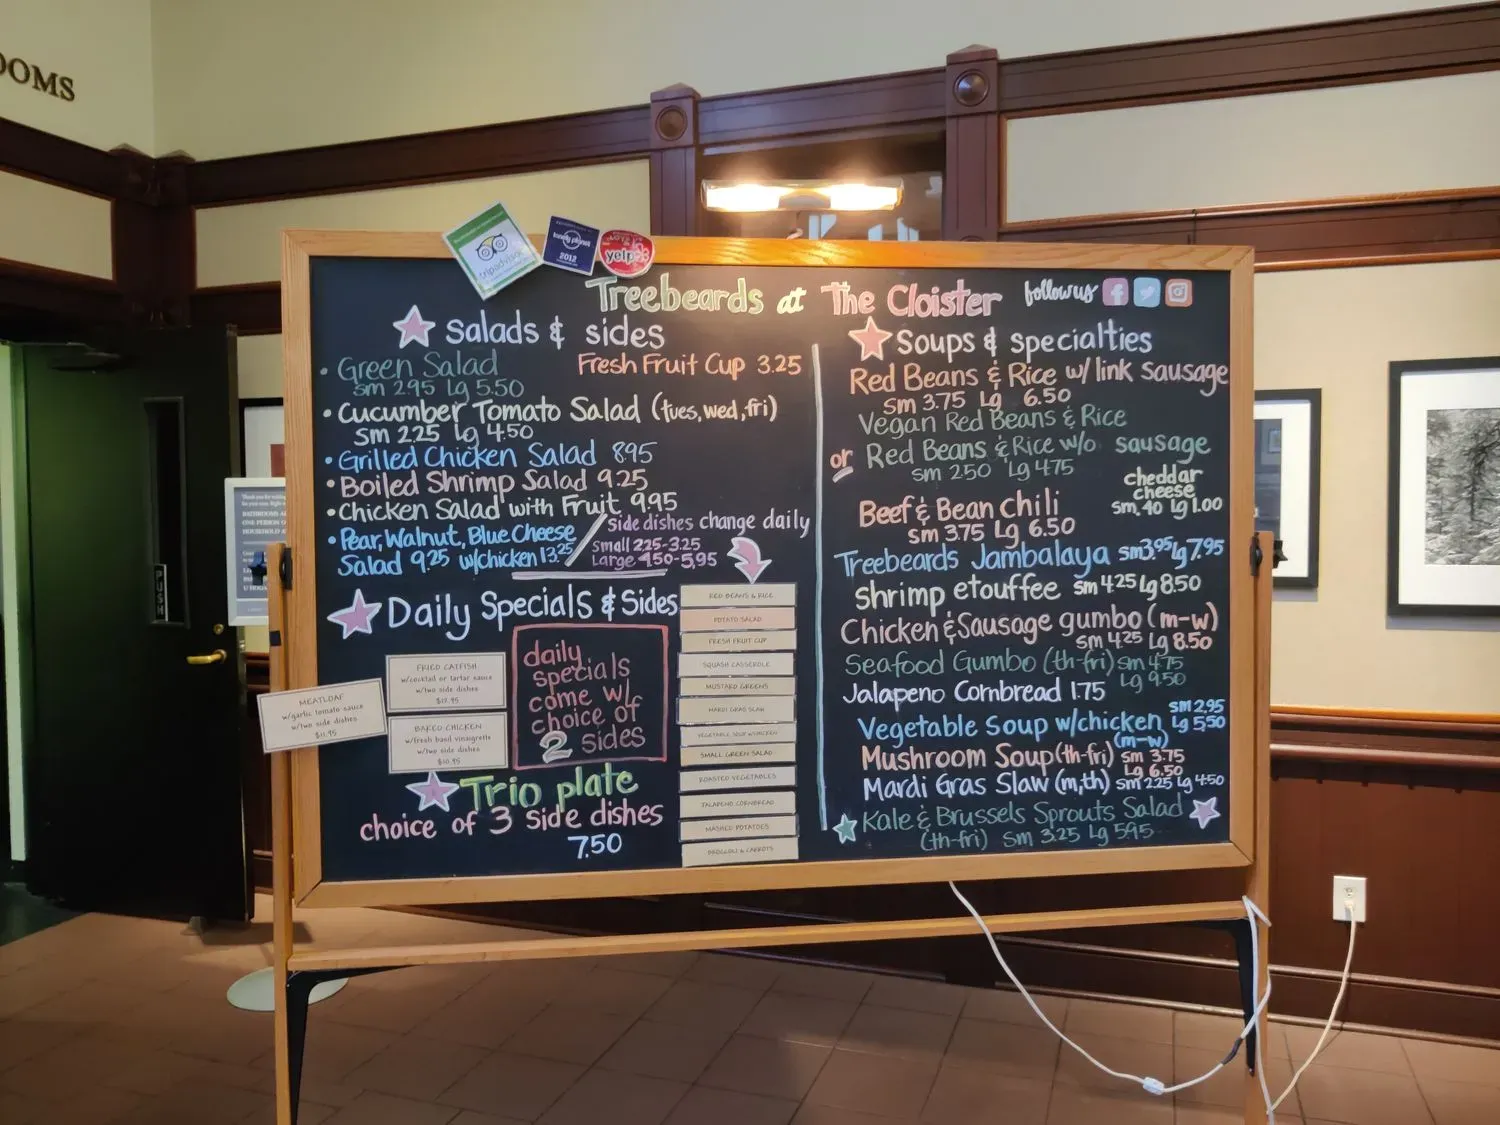 OOMS
tripadvisor
lonely planet
2012
yelp
Treebeards at The Cloister
follow us
Salads & sides
• Green Salad
sm 2.95 Lg 5.50
Fresh Fruit Cup 3.25
• Cucumber Tomato Salad (tues, wed, fri)
sm 2.25 Lg 4.50
• Grilled Chicken Salad 895
• Boiled Shrimp Salad 9.25
• Chicken Salad with Fruit 9.95
• Pear, Walnut, Blue Cheese
Salad 9.25 w/chicken 13.25
side dishes change daily
small 2.25-3.25
Large 4.50-5.95
Daily Specials & Sides
MEATLOAF
w/garlic tomato sauce
w/two side dishes
$11.95
FRIED CATFISH
w/cocktail or tartar sauce
w/two side dishes
$12.95
BAKED CHICKEN
w/fresh basil vinaigrette
w/two side dishes
$10.95
daily
specials
come w/
choice of
2 sides
RED BEANS & RICE
POTATO SALAD
FRESH FRUIT CUP
SQUASH CASSEROLE
MUSTARD GREENS
MARDI GRAS SLAW
VEGETABLE SOUP W/CHICKEN
SMALL GREEN SALAD
ROASTED VEGETABLES
JALAPENO CORNBREAD
MASHED POTATOES
BROCCOLI & CARROTS
Trio plate
choice of 3 side dishes
7.50
Soups & specialties
Red Beans & Rice w/link sausage
sm 3.75 Lg 6.50
Vegan Red Beans & Rice
or Red Beans & Rice w/o sausage
sm 2.50 Lg 4.75
cheddar
cheese
sm .40 Lg 1.00
Beef & Bean chili
sm 3.75 Lg 6.50
Treebeards Jambalaya sm 3.95 Lg 7.95
Shrimp etouffee sm 4.25 Lg 8.50
Chicken & Sausage gumbo (m-w)
sm 4.25 Lg 8.50
Seafood Gumbo (th-fri) sm 4.75
Lg 9.50
Jalapeno Cornbread 1.75
Vegetable Soup w/chicken sm 2.95
(m-w) Lg 5.50
Mushroom Soup (th-fri) sm 3.75
Lg 6.50
Mardi Gras Slaw (m,th) sm 2.25 Lg 4.50
Kale & Brussels Sprouts Salad
(th-fri) sm 3.25 Lg 5.95
PUSH